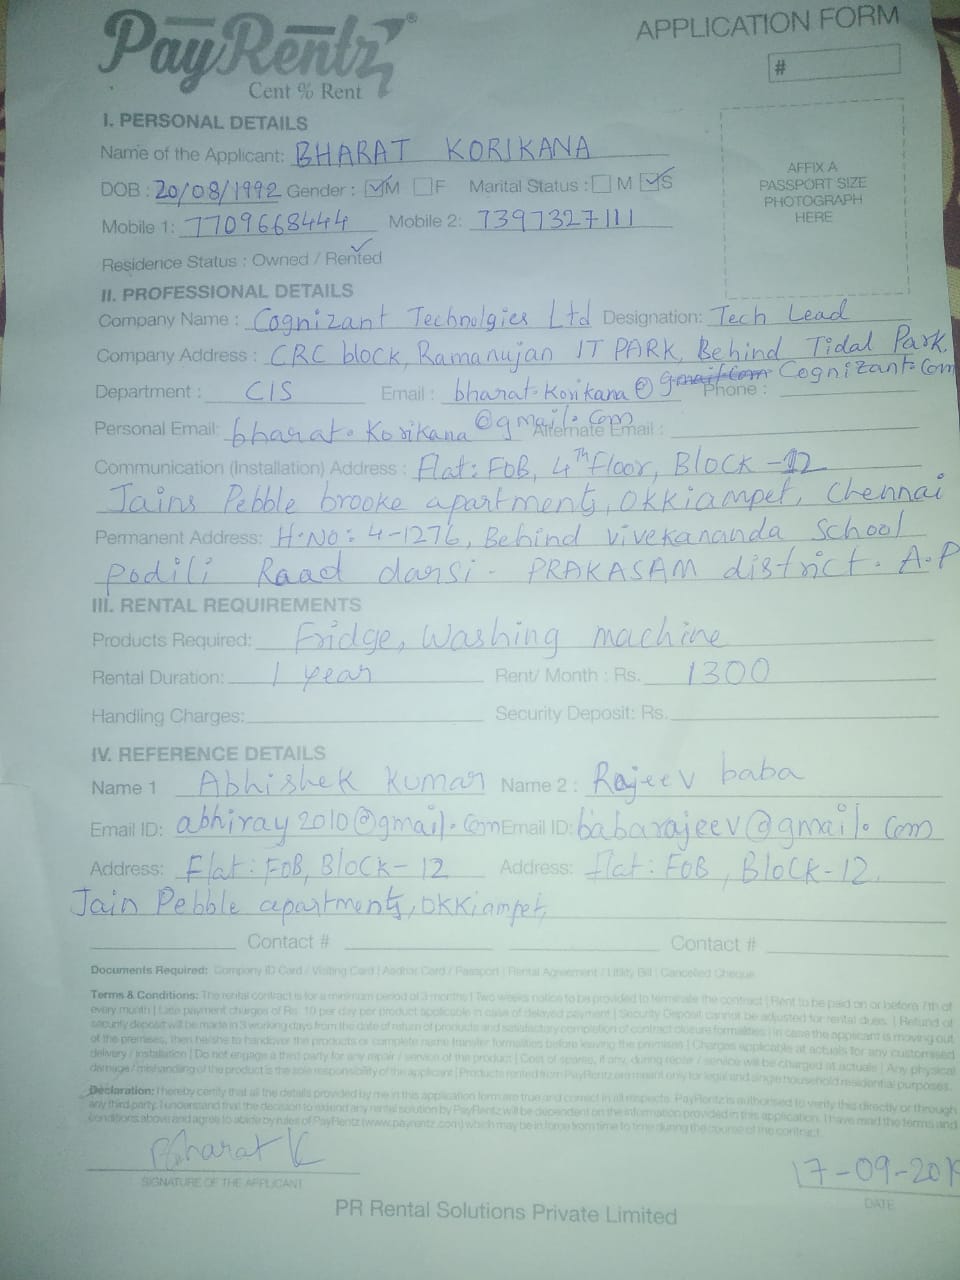 PayRentz®
Cent % Rent
APPLICATION FORM
#
I. PERSONAL DETAILS
Name of the Applicant: BHARAT KORIKANA
DOB : 20/08/1992 Gender : M F Marital Status : M S
Mobile 1: 7709668444 Mobile 2: 7397327111
Residence Status : Owned / Rented
AFFIX A
PASSPORT SIZE
PHOTOGRAPH
HERE
II. PROFESSIONAL DETAILS
Company Name : Cognizant Technolgies Ltd Designation: Tech Lead
Company Address : CRC block, Ramanujan IT PARK, Behind Tidal Park,
Department : CIS Email : bharat.Korikana@gmail.com Cognizant.Com Phone :
Personal Email: bharat.Korikana@gmail.com Alternate Email :
Communication (Installation) Address : Flat: FOB, 4th floor, BLOCK-12
Jains Pebble brooke apartments, OKKiampet, Chennai
Permanent Address: H.NO: 4-1276, Behind vivekananda School
podili Raad darsi - PRAKASAM district. A.P
III. RENTAL REQUIREMENTS
Products Required: Fridge, Washing machine
Rental Duration: 1 year Rent/ Month : Rs. 1300
Handling Charges: Security Deposit: Rs.
IV. REFERENCE DETAILS
Name 1 Abhishek Kumar Name 2 : Rajeev baba
Email ID: abhiray2010@gmail.com Email ID: babarajeev@gmail.com
Address: Flat: FOB, BLOCK-12 Address: flat: FOB, BLOCK-12.
Jain Pebble apartments, OKKiampet,
Contact # Contact #
Documents Required: Company ID Card / Visiting Card | Aadhar Card / Passport | Rental Agreement / Utility Bill | Cancelled Cheque
Terms & Conditions: The rental contract is for a minimum period of 3 months | Two weeks notice to be provided to terminate the contract | Rent to be paid on or before 7th of
every month | Late payment charges of Rs. 10 per day per product applicable in case of delayed payment | Security Deposit cannot be adjusted for rental dues. | Refund of
security deposit will be made in 3 working days from the date of return of products and satisfactory completion of contract closure formalities | In case the applicant is moving out
of the premises, then he/she to handover the products or complete name transfer formalities before leaving the premises | Charges applicable at actuals for any customised
delivery / installation | Do not engage a third party for any repair / service of the product | Cost of spares, if any, during repair / service will be charged at actuals | Any physical
damage / mishandling of the product is the sole responsibility of the applicant | Products rented from PayRentz are meant only for legal and single household residential purposes.
Declaration: I hereby certify that all the details provided by me in this application form are true and correct in all respects. PayRentz is authorised to verify this directly or through
any third party. I understand that the decision to extend any rental solution by PayRentz will be dependent on the information provided in this application. I have read the terms and
conditions above and agree to abide by rules of PayRentz (www.payrentz.com) which may be in force from time to time during the course of the contract.
Bharat K
SIGNATURE OF THE APPLICANT
17-09-2019
DATE
PR Rental Solutions Private Limited